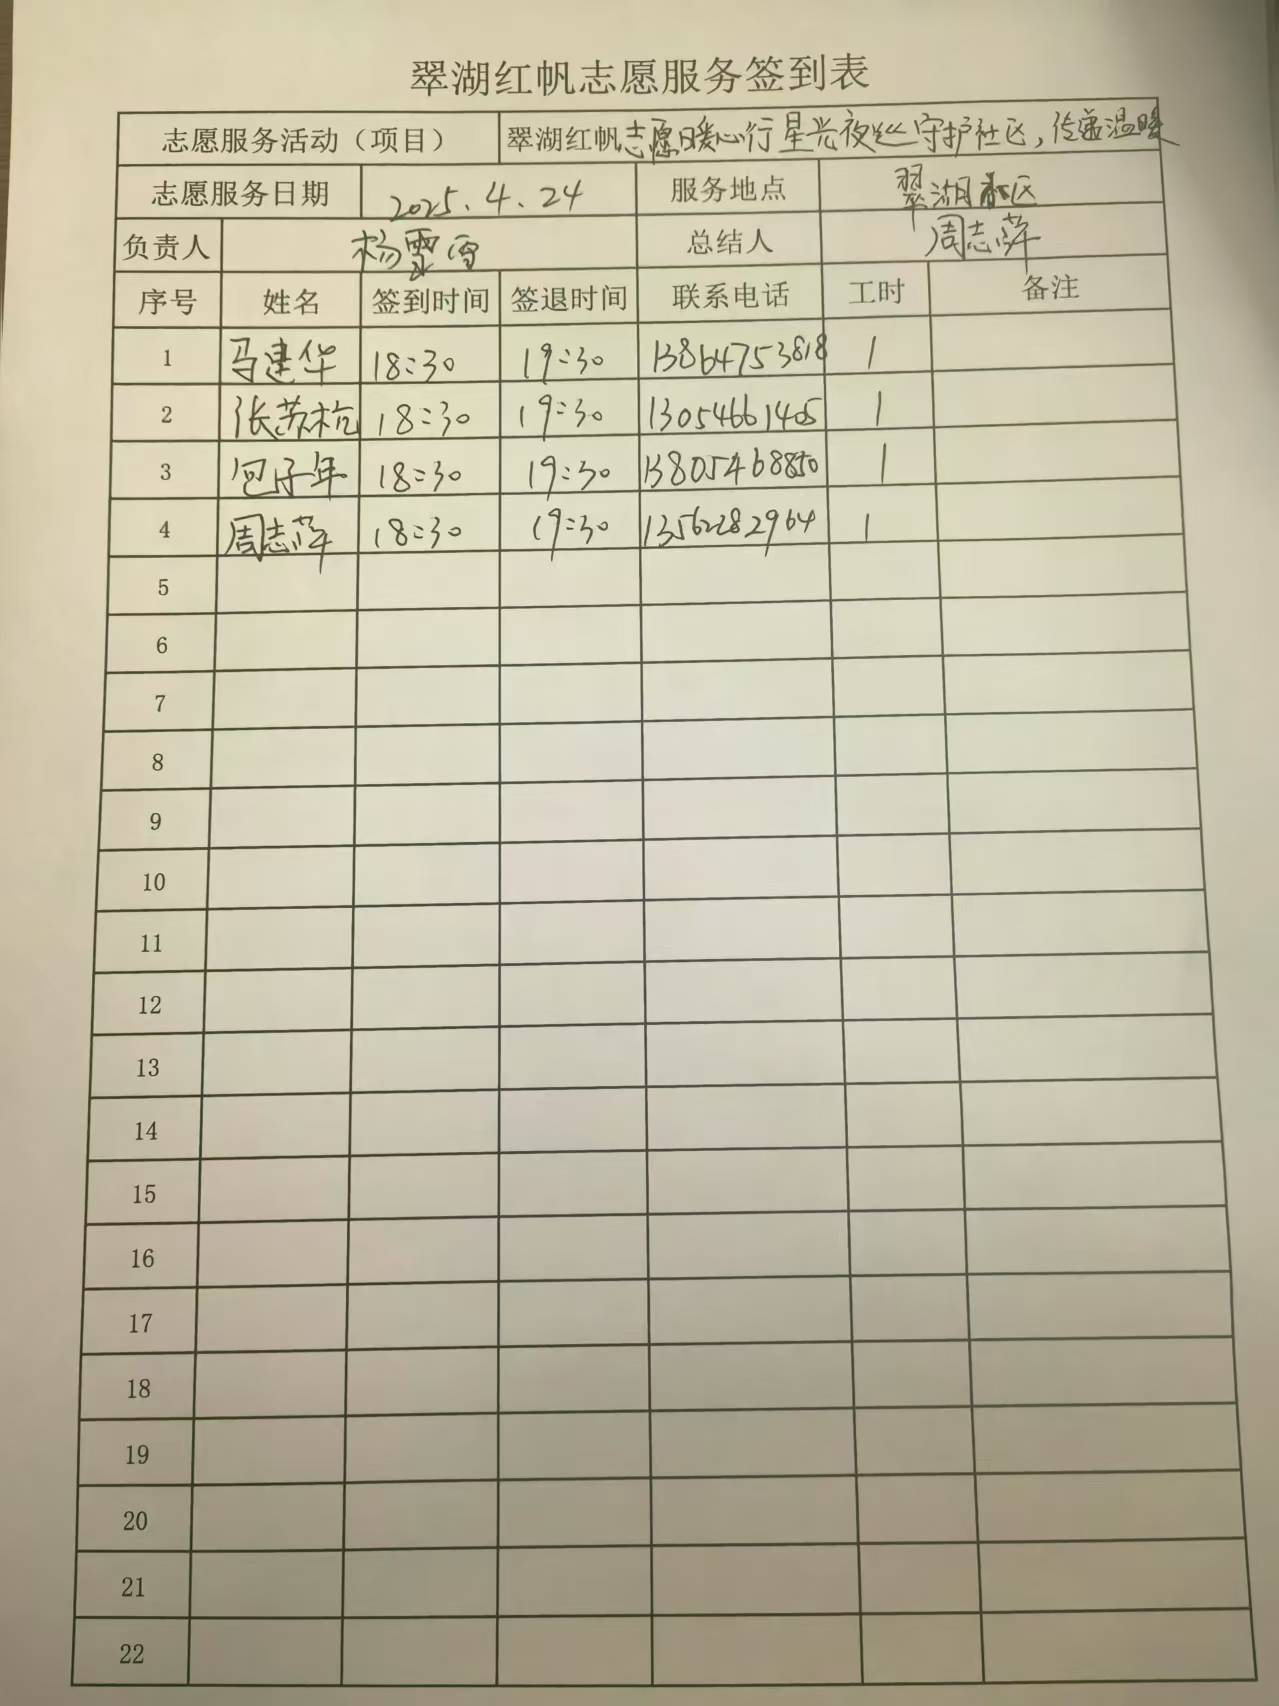 翠湖红帆志愿服务签到表
志愿服务活动（项目） 翠湖红帆志愿暖心行星光夜巡守护社区，传递温暖
志愿服务日期 2025.4.24 服务地点 翠湖社区
负责人 杨雪 总结人 周志萍
序号 姓名 签到时间 签退时间 联系电话 工时 备注
1 马建华 18:30 19:30 13864753818 1
2 张苏杭 18:30 19:30 13054661405 1
3 包子年 18:30 19:30 13805468850 1
4 周志萍 18:30 19:30 13562282964 1
5
6
7
8
9
10
11
12
13
14
15
16
17
18
19
20
21
22